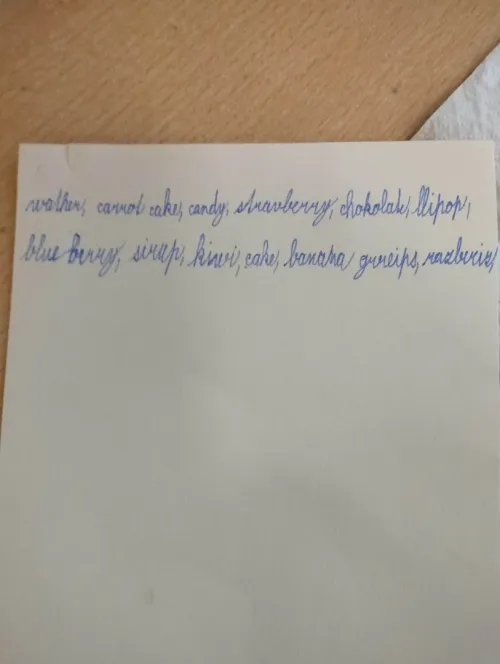 wather, carrot cake, candy, stravberry, chokolate, llipop,
blue berry, sirap, kiwi, cake, banana grreips, razberiz,